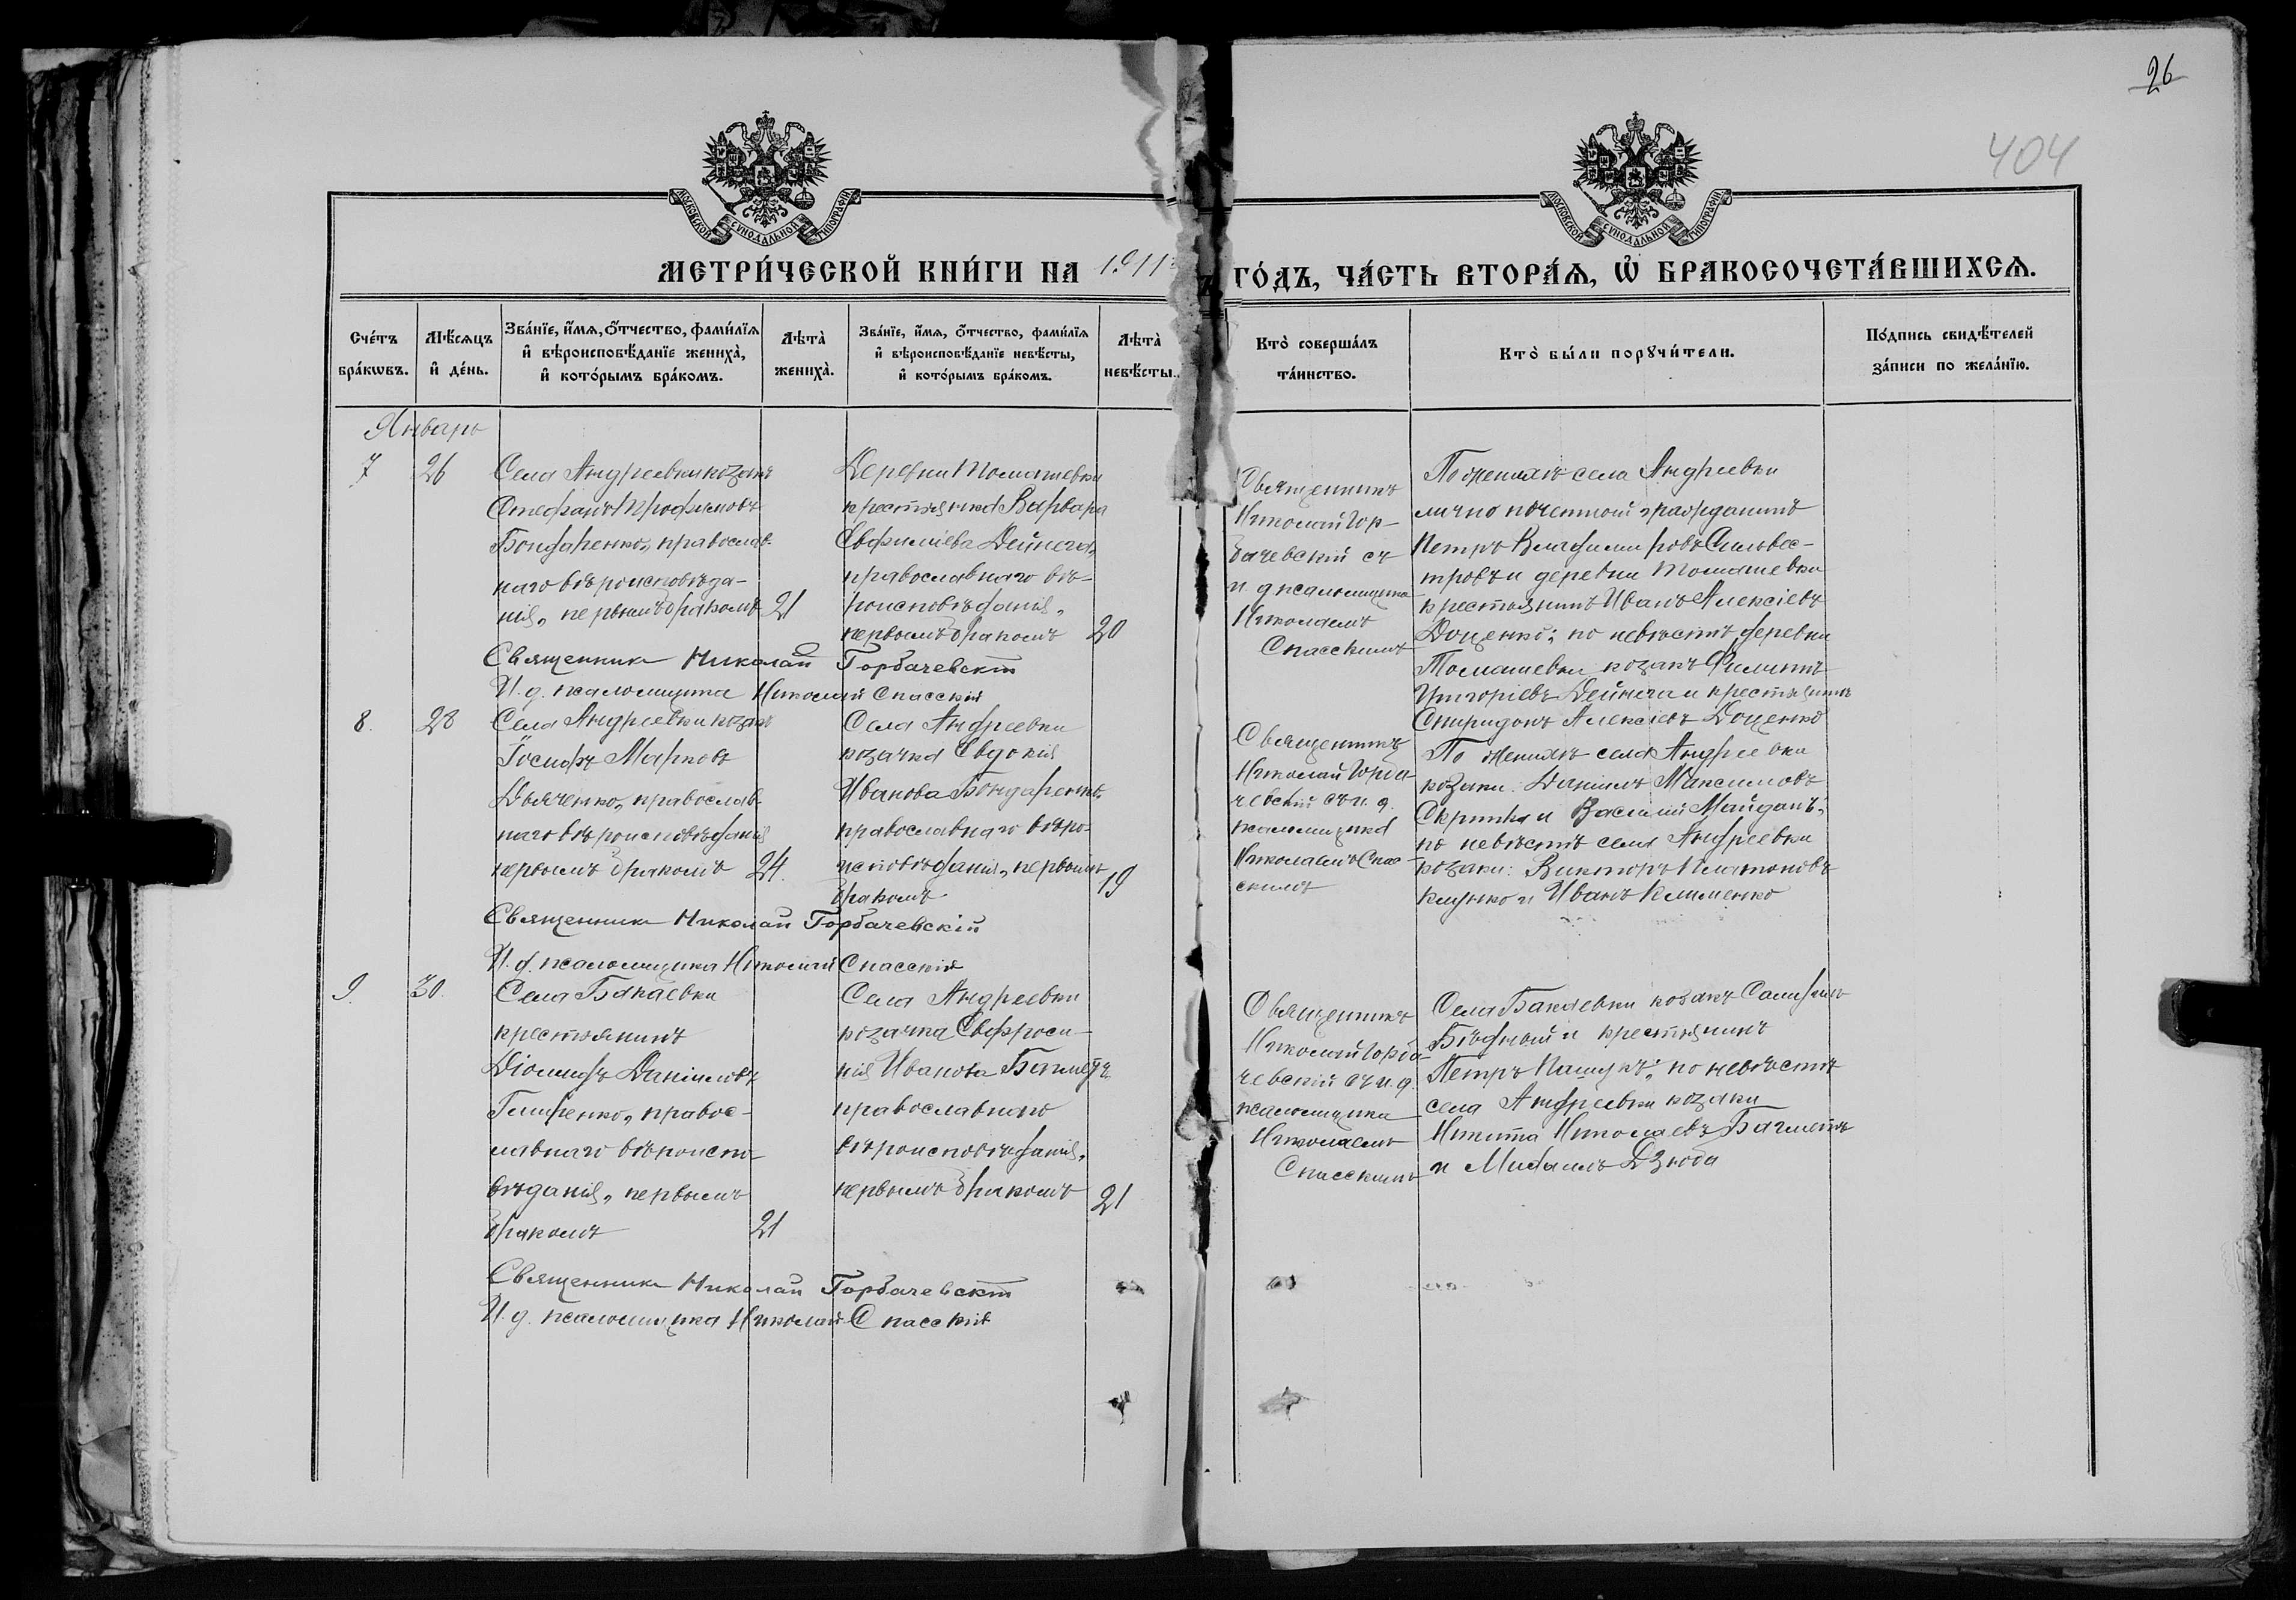 26
404
МОСКОВСКОЙ СѴНОДАЛЬНОЙ ТИПОГРАФІИ
МОСКОВСКОЙ СѴНОДАЛЬНОЙ ТИПОГРАФІИ
МЕТРИ́ЧЕСКОЙ КНИ́ГИ НА 1911 ГО́ДЪ, ЧА́СТЬ ВТОРА́Я, Ѡ БРАКОСОЧЕТА́ВШИХСЯ.
Сче́тъ бра́кѡвъ.
Мѣ́сяцъ и҆ де́нь.
Зва́нїе, и҆́мя, ѻ҆́тчество, фами́лїя и҆ вѣроисповѣ́данїе жениха̀, и҆ кото́рымъ бра́комъ.
Лѣ́та̀ жениха̀.
Зва́нїе, и҆́мя, ѻ҆́тчество, фами́лїя и҆ вѣроисповѣ́данїе невѣ́сты, и҆ кото́рымъ бра́комъ.
Лѣ́та̀ невѣ́сты.
Кто̀ соверша́лъ та́инство.
Кто̀ бы́ли порꙋчи́тели.
По́дпись свидѣ́телей за́писи по жела́нїю.
Январь
7
26
Села Андреевки козакъ
Стефанъ Трофимовъ
Бондаренко, православ-
наго вѣроисповѣда-
нія, первымъ бракомъ
21
Деревни Томашевки
крестьянка Варвара
Евфиміева Дейнега,
православнаго вѣ-
роисповѣданія,
первымъ бракомъ
20
Священникъ
Николай Гор-
бачевскій съ
и. д. псаломщика
Николаемъ
Спасскимъ
По женихѣ села Андреевки
лично почетный гражданинъ
Петръ Владиміровъ Сильвес-
тровъ и деревни Томашевки
крестьянинъ Иванъ Алексіевъ
Доценко; по невѣстѣ деревни
Томашевки козакъ Филиппъ
Григоріевъ Дейнега и крестьянинъ
Спиридонъ Алексіевъ Доценко
Священникъ Николай Горбачевскій
И. д. псаломщика Николай Спасскій
8.
28
Села Андреевки козакъ
Іосифъ Марковъ
Дьяченко, православ-
наго вѣроисповѣданія
первымъ бракомъ
24.
Села Андреевки
козачка Евдокія
Иванова Бондаренко,
православнаго вѣро-
исповѣданія, первымъ
бракомъ
19
Священникъ
Николай Горба-
чевскій съ и. д.
псаломщика
Николаемъ Спас-
скимъ
По женихѣ села Андреевки
козаки: Даніилъ Максимовъ
Скрипка и Василій Майданъ;
по невѣстѣ села Андреевки
козаки: Викторъ Платоновъ
и Иванъ Клименко
Священникъ Николай Горбачевскій
И. д. псаломщика Николай Спасскій
9.
30.
Села Бакаевки
крестьянинъ
Діомидъ Даніиловъ
православнаго вѣроиспо-
вѣданія, первымъ
бракомъ
21
Села Андреевки
козачка Евфроси-
нія Иванова
православнаго
вѣроисповѣданія,
первымъ бракомъ
21
Священникъ
Николай Горба-
чевскій съ и. д.
псаломщика
Николаемъ
Спасскимъ
Села Бакаевки козакъ
Бѣдный и крестьянинъ
Петръ Пащукъ; по невѣстѣ
села Андреевки козаки
Никита Николаевъ
и Михаилъ Дзюба
Священникъ Николай Горбачевскій
И. д. псаломщика Николай Спасскій